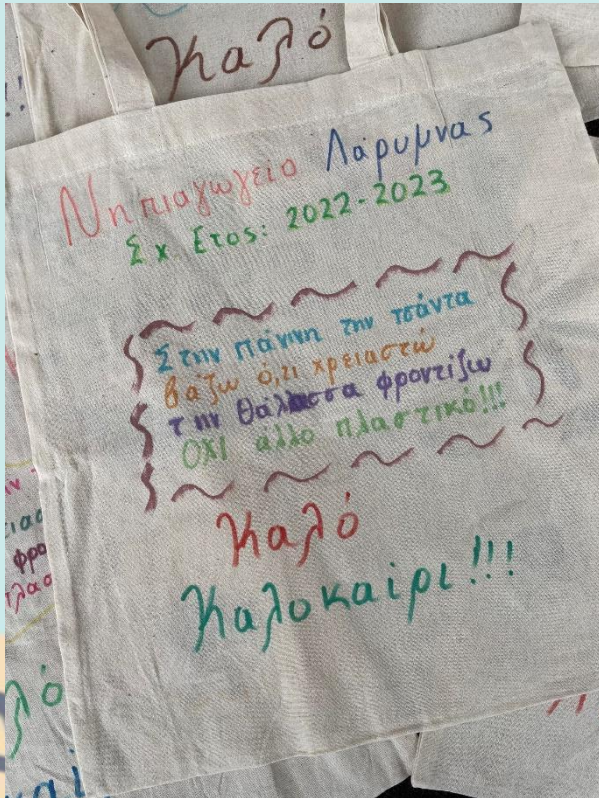 Καλό
Νηπιαγωγείο Λάρυμνας
Σχ Ετος: 2022-2023
Στην πάνινη την τσάντα
βάζω ό,τι χρειαστώ
την θάλασσα φροντίζω
ΟΧΙ άλλο πλαστικό!!!
Καλό
Καλοκαίρι!!!